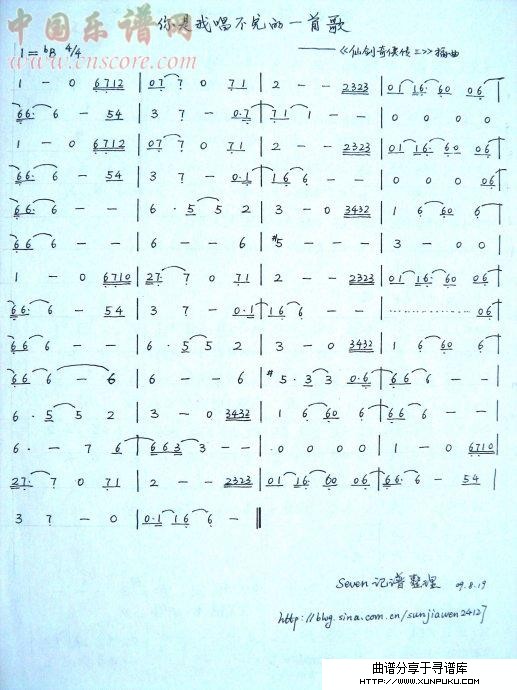 中国乐谱网
www.cnscore.com
你是我唱不完的一首歌
1=ᵇB 4/4 ——《仙剑奇侠传三》插曲
1 - 0 6712 | 07 7 0 71 | 2 - - 2323 | 01 16· 60 06 |
66· 6 - 54 | 3 7 - 0·7 | 71 1 - - | 0 0 0 0 |
1 - 0 6712 | 07 7 0 71 | 2 - - 2323 | 01 16· 60 06 |
66· 6 - 54 | 3 7 - 0·1 | 16 6 - - | 0 0 0 06 |
66· 6 - - | 6 · 5 5 2 | 3 - 0 3432 | 1 6 60 6 |
66 6 - - | 6 - - 6 | #5 - - - | 3 - 0 0 |
1 - 0 6710 | 27· 7 0 71 | 2 - - 2323 | 01 16· 60 06 |
66· 6 - 54 | 3 7 - 0·1 | 16 6 - - | ............ 06 |
66 6 - - | 6 · 5 5 2 | 3 - 0 3432 | 1 6 60 6 |
66 6 - 6 | 6 - - 6 | #5 · 3 3 0·6 | 66 6 - - |
6 · 5 5 2 | 3 - 0 3432 | 1 6 60 6 | 66 6 - - |
6 · - 7 6 | 663 3 - - | 0 0 0 0 | 1 - 0 6710 |
27· 7 0 71 | 2 - - 2323 | 01 16· 60 06 | 66· 6 - 54 |
3 7 - 0 | 0·1 16 6 - ‖
Seven 记谱整理 09.8.19
http://blog.sina.com.cn/sunjiawen24127
曲谱分享于寻谱库
www.xunpuku.com